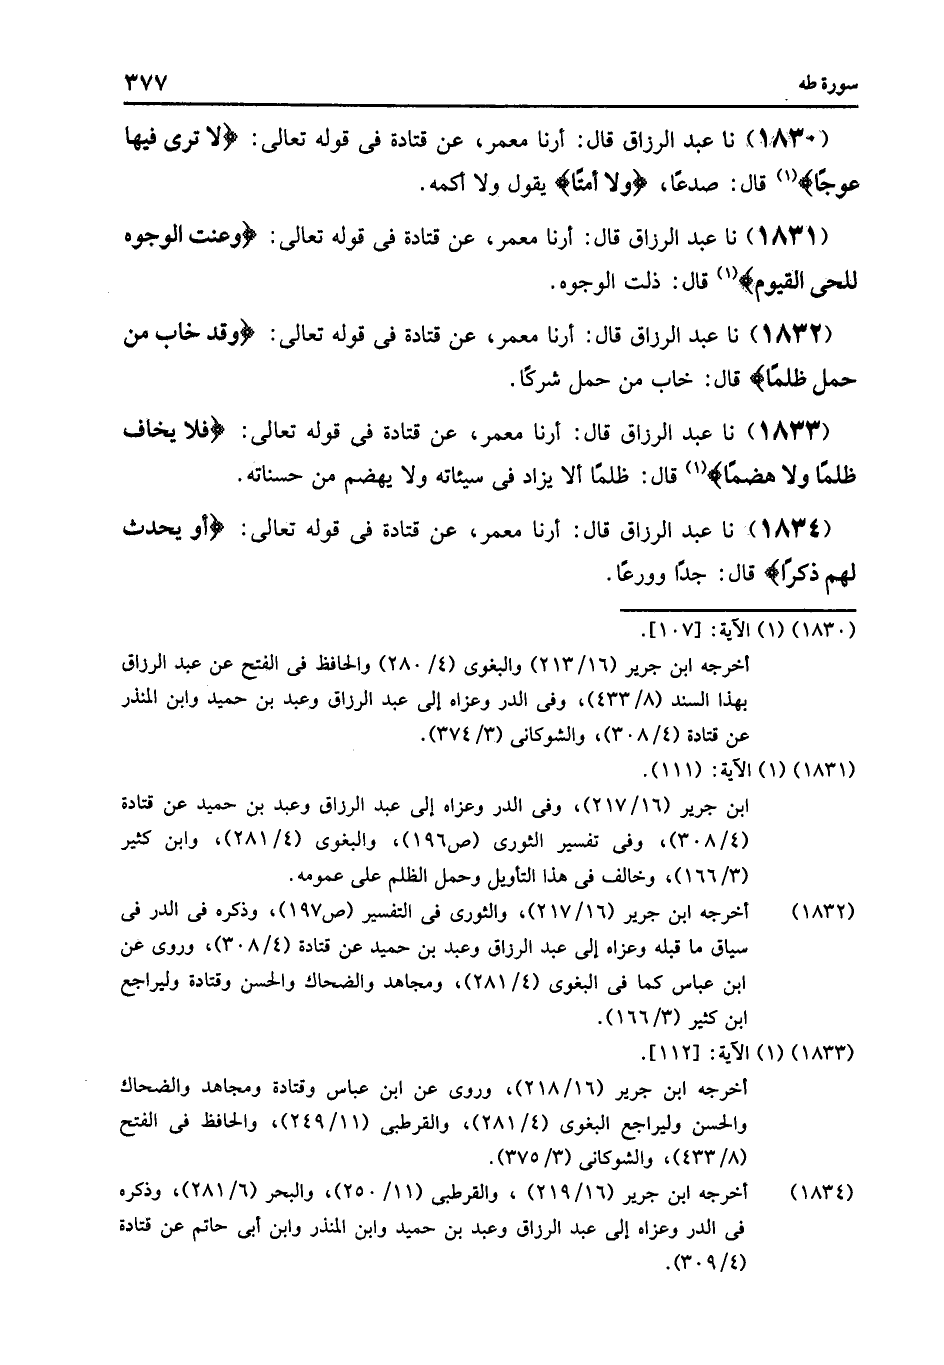 سورة طه ٣٧٧
(١٨٣٠) نا عبد الرزاق قال: أرنا معمر، عن قتادة فى قوله تعالى: ﴿لا ترى فيها
عوجًا﴾(١) قال: صدعًا، ﴿ولا أمتًا﴾ يقول ولا أكمه.
(١٨٣١) نا عبد الرزاق قال: أرنا معمر، عن قتادة فى قوله تعالى: ﴿وعنت الوجوه
للحى القيوم﴾(١) قال: ذلت الوجوه.
(١٨٣٢) نا عبد الرزاق قال: أرنا معمر، عن قتادة فى قوله تعالى: ﴿وقد خاب من
حمل ظلمًا﴾ قال: خاب من حمل شركًا.
(١٨٣٣) نا عبد الرزاق قال: أرنا معمر، عن قتادة فى قوله تعالى: ﴿فلا يخاف
ظلمًا ولا هضمًا﴾(١) قال: ظلمًا ألا يزاد فى سيئاته ولا يهضم من حسناته.
(١٨٣٤) نا عبد الرزاق قال: أرنا معمر، عن قتادة فى قوله تعالى: ﴿أو يحدث
لهم ذكرًا﴾ قال: جدًا وورعًا.
(١٨٣٠) (١) الآية: [١٠٧].
أخرجه ابن جرير (٢١٣/١٦) والبغوى (٢٨٠/٤) والحافظ فى الفتح عن عبد الرزاق
بهذا السند (٤٣٣/٨)، وفى الدر وعزاه إلى عبد الرزاق وعبد بن حميد وابن المنذر
عن قتادة (٣٠٨/٤)، والشوكانى (٣٧٤/٣).
(١٨٣١) (١) الآية: (١١١).
ابن جرير (٢١٧/١٦)، وفى الدر وعزاه إلى عبد الرزاق وعبد بن حميد عن قتادة
(٣٠٨/٤)، وفى تفسير الثورى (ص١٩٦)، والبغوى (٢٨١/٤)، وابن كثير
(١٦٦/٣)، وخالف فى هذا التأويل وحمل الظلم على عمومه.
(١٨٣٢) أخرجه ابن جرير (٢١٧/١٦)، والثورى فى التفسير (ص١٩٧)، وذكره فى الدر فى
سياق ما قبله وعزاه إلى عبد الرزاق وعبد بن حميد عن قتادة (٣٠٨/٤)، وروى عن
ابن عباس كما فى البغوى (٢٨١/٤)، ومجاهد والضحاك والحسن وقتادة وليراجع
ابن كثير (١٦٦/٣).
(١٨٣٣) (١) الآية: [١١٢].
أخرجه ابن جرير (٢١٨/١٦)، وروى عن ابن عباس وقتادة ومجاهد والضحاك
والحسن وليراجع البغوى (٢٨١/٤)، والقرطبى (٢٤٩/١١)، والحافظ فى الفتح
(٤٣٣/٨)، والشوكانى (٣٧٥/٣).
(١٨٣٤) أخرجه ابن جرير (٢١٩/١٦) ، والقرطبى (٢٥٠/١١)، والبحر (٢٨١/٦)، وذكره
فى الدر وعزاه إلى عبد الرزاق وعبد بن حميد وابن المنذر وابن أبى حاتم عن قتادة
(٣٠٩/٤).